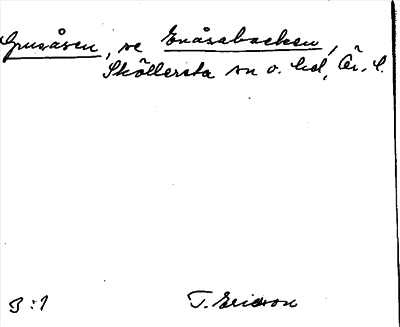 Grusåsen, se Enåsabacken,
Sköllersta sn o. hd, Ör. l.
3:1 T. Ericson